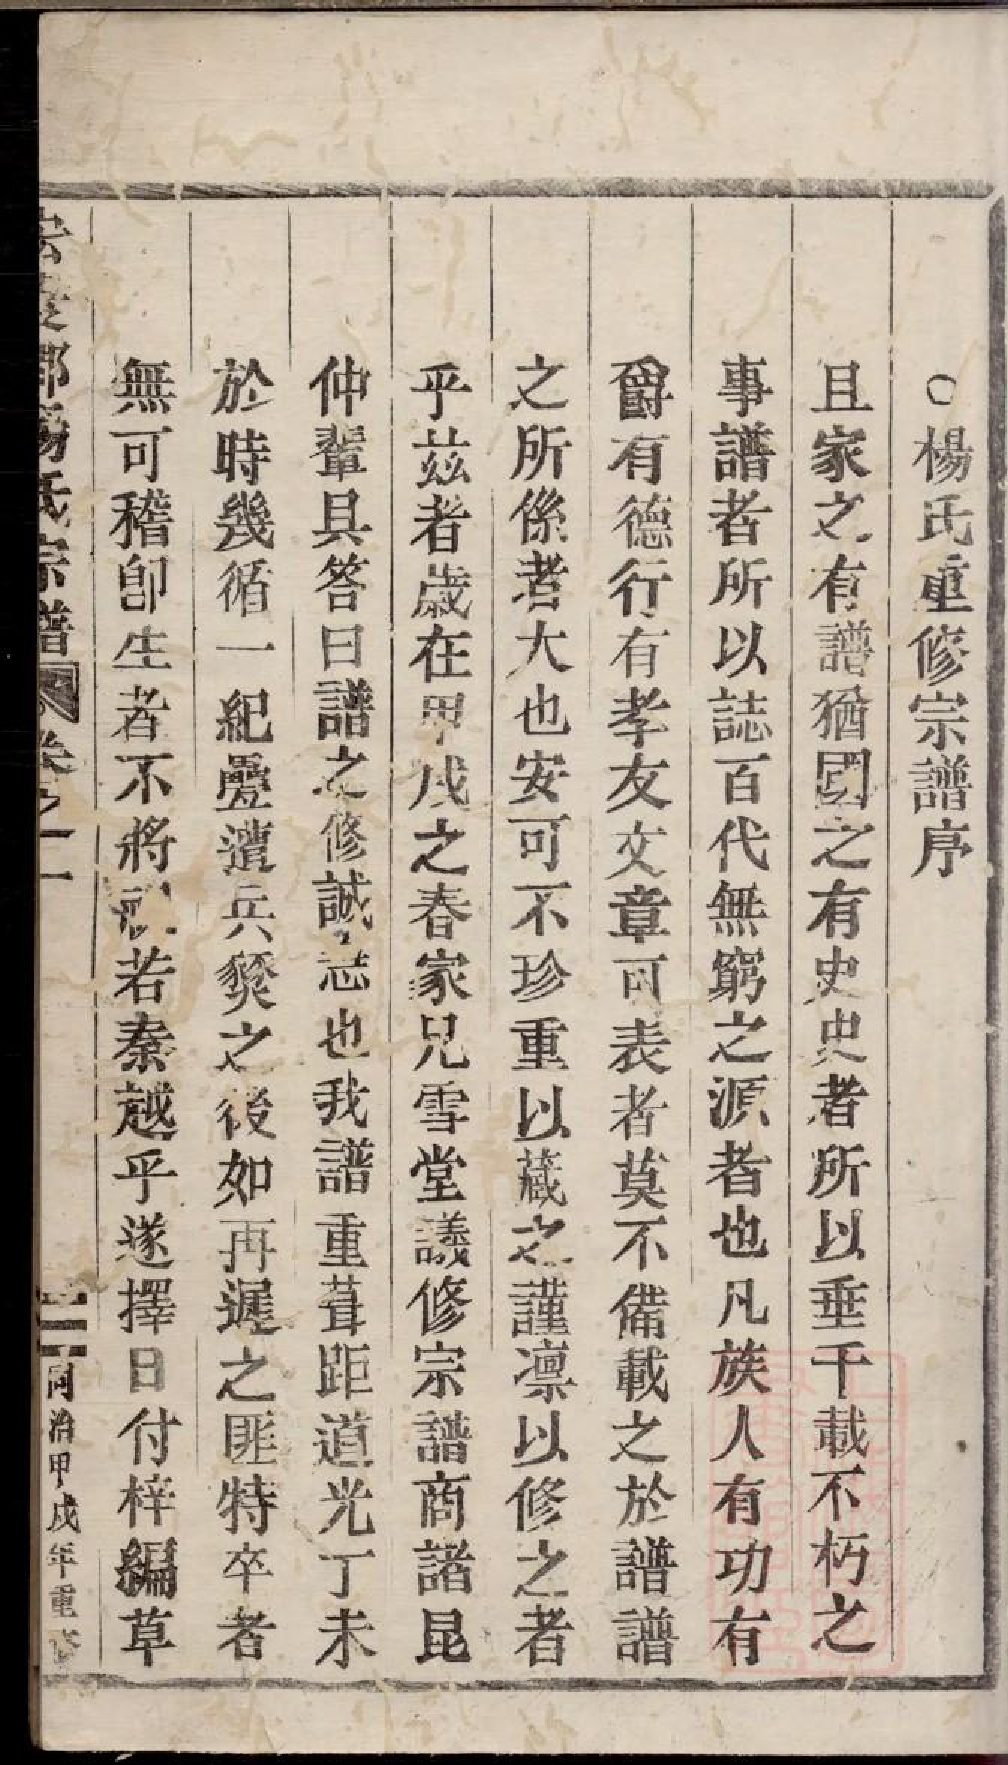 ○楊氏重修宗譜序
且家之有譜猶國之有史史者所以垂千載不朽之
事譜者所以誌百代無窮之源者也凡族人有功有
爵有德行有孝友文章可表者莫不備載之於譜譜
之所係者大也安可不珍重以藏之謹凛以修之者
乎兹者歲在甲戌之春家兄雪堂議修宗譜商諸昆
仲輩具答曰譜之修誠誌也我譜重葺距道光丁未
於時幾循一紀疊遭兵燹之後如再遲之匪特卒者
無可稽卽生者不將視若秦越乎遂擇日付梓編草
鄉楊氏宗譜 卷之一 一 同治甲戌年重修